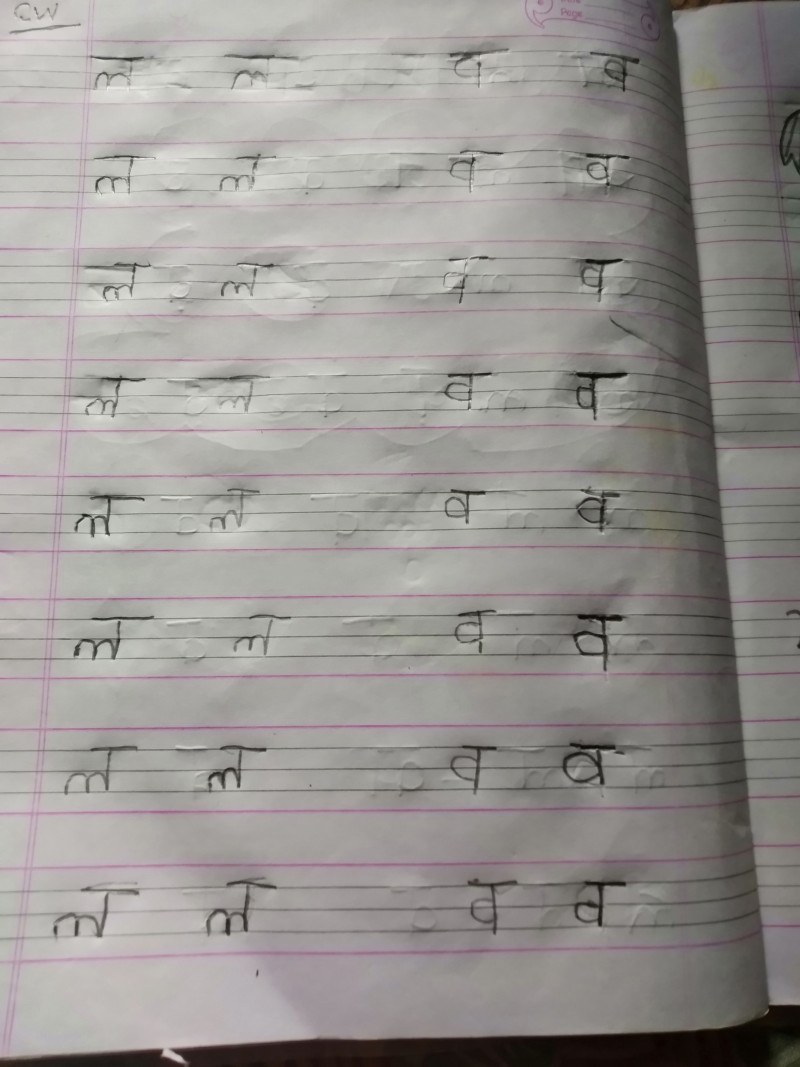 CW
Page
ल ल व व
ल ल व व
ल ल व व
ल ल व व
ल ल व व
ल ल व व
ल ल व व
ल ल व व